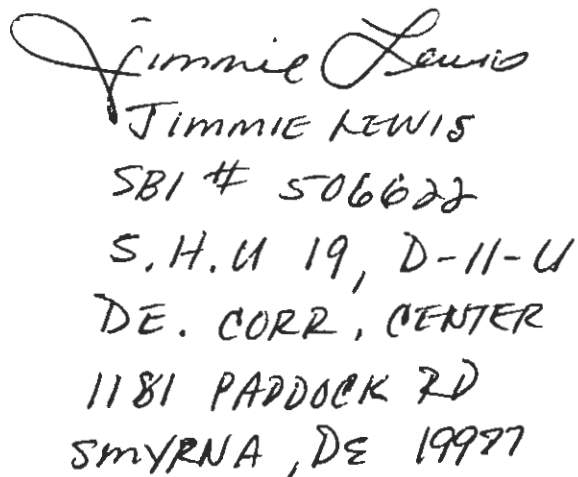 Jimmie Lewis
JIMMIE LEWIS
SBI # 506622
S.H.U 19, D-11-U
DE. CORR, CENTER
1181 PADDOCK RD
SMYRNA, DE 19977